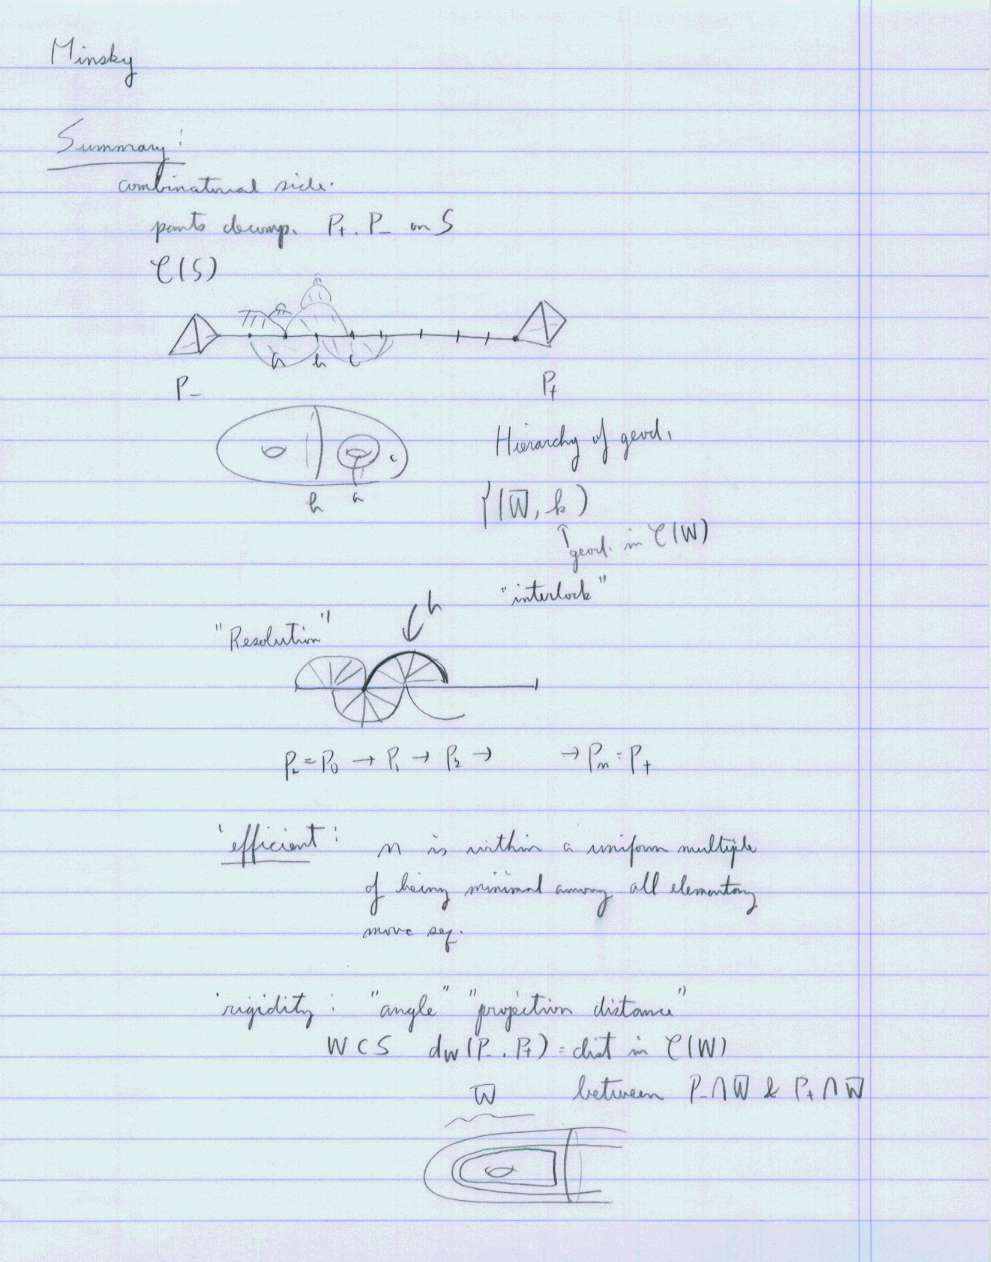 Minsky
Summary:
combinatorial side.
pants decomp. P₊, P₋ on S
𝒞(S)
a h c
P₋ P₊
c
h a
Hierarchy of geod.
{(W̅, k)
↑ geod. in 𝒞(W)
"interlock"
"Resolution"
h
P₋ = P₀ → P₁ → P₂ → → Pₙ = P₊
'efficient': n is within a uniform multiple
of being minimal among all elementary
move seq.
'rigidity: "angle" "projection distance"
W ⊂ S d_W(P₋, P₊) = dist in 𝒞(W)
between P₋ ∩ W̅ & P₊ ∩ W̅
W̅